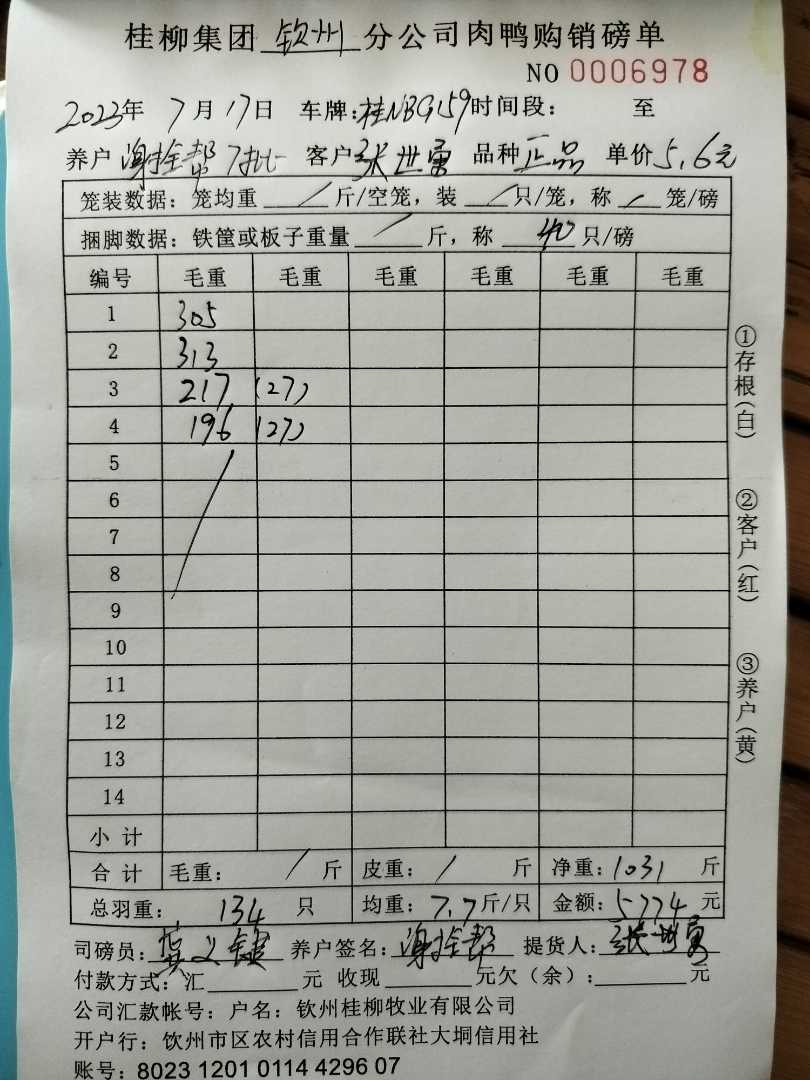 桂柳集团 钦州 分公司肉鸭购销磅单
NO 0006978
2023年 7月17日 车牌:桂NBG159 时间段: 至
养户 谢拴帮 7批 客户 张世勇 品种 正品 单价 5.6元
笼装数据:笼均重 / 斤/空笼,装 / 只/笼,称 / 笼/磅
捆脚数据:铁筐或板子重量 / 斤,称 40 只/磅
编号 毛重 毛重 毛重 毛重 毛重 毛重
1 305
2 313
3 217 (27)
4 196 (27)
5
6
7
8
9
10
11
12
13
14
小计
合计 毛重: / 斤 皮重: / 斤 净重:1031 斤
总羽重: 134 只 均重:7.7斤/只 金额:5774元
司磅员: 养户签名:谢拴帮 提货人:张世勇
付款方式:汇 元 收现 元欠(余): 元
公司汇款帐号:户名:钦州桂柳牧业有限公司
开户行:钦州市区农村信用合作联社大垌信用社
账号:8023 1201 0114 4296 07
①存根(白)
②客户(红)
③养户(黄)